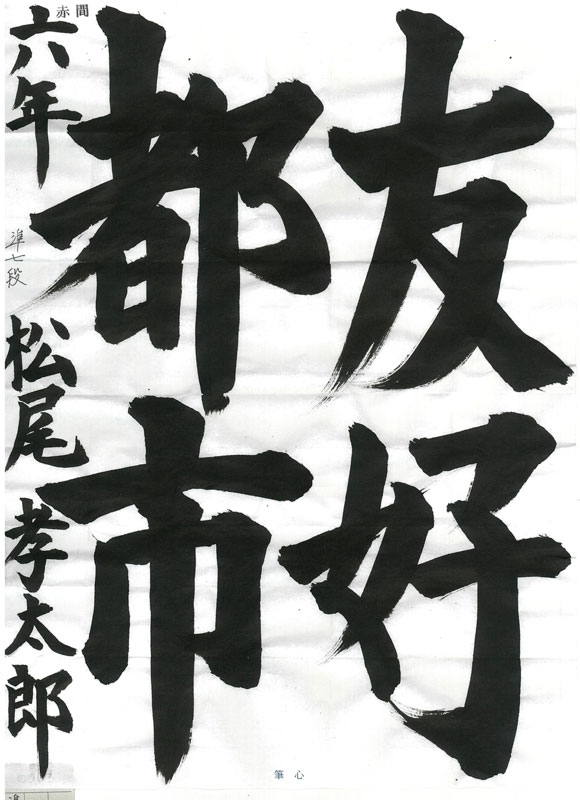 友好
都市
六年 松尾 孝太郎
準七段
赤間
心筆